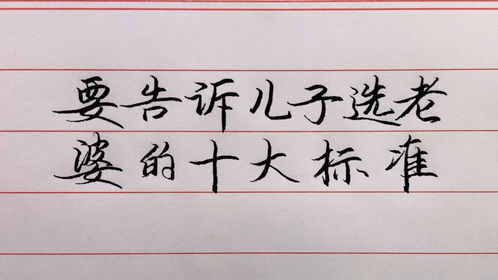 要告诉儿子选老
婆的十大标准